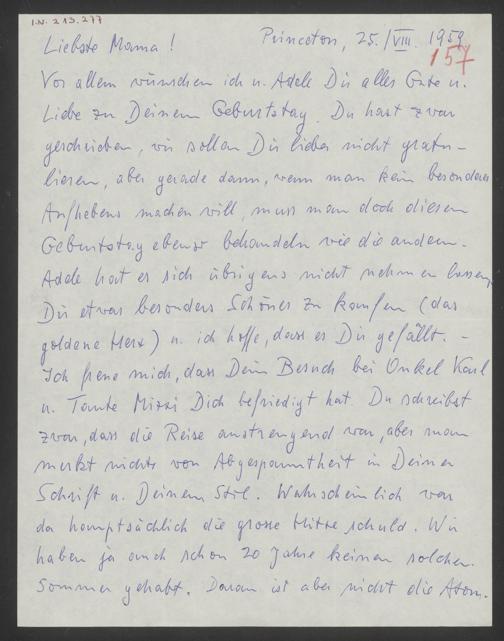 I.N. 213.277
Liebste Mama! Princeton, 25./VIII. 1959
157
Vor allem wünschen ich u. Adele Dir alles Gute u.
Liebe zu Deinem Geburtstag. Du hast zwar
geschrieben, wir sollen Dir lieber nicht gratu-
lieren, aber gerade dann, wenn man kein besonderes
Aufhebens machen will, muss man doch diesen
Geburtstag ebenso behandeln wie die andern.
Adele hat es sich übrigens nicht nehmen lassen,
Dir etwas besonders Schönes zu kaufen (das
goldene Herz) u. ich hoffe, dass es Dir gefällt. –
Ich freue mich, dass Dein Besuch bei Onkel Karl
u. Tante Mizzi Dich befriedigt hat. Du schreibst
zwar, dass die Reise anstrengend war, aber man
merkt nichts von Abgespanntheit in Deiner
Schrift u. Deinem Stil. Wahrscheinlich war
da hauptsächlich die grosse Hitze schuld. Wir
haben ja auch schon 20 Jahre keinen solchen
Sommer gehabt. Daran ist aber nicht die Atom-